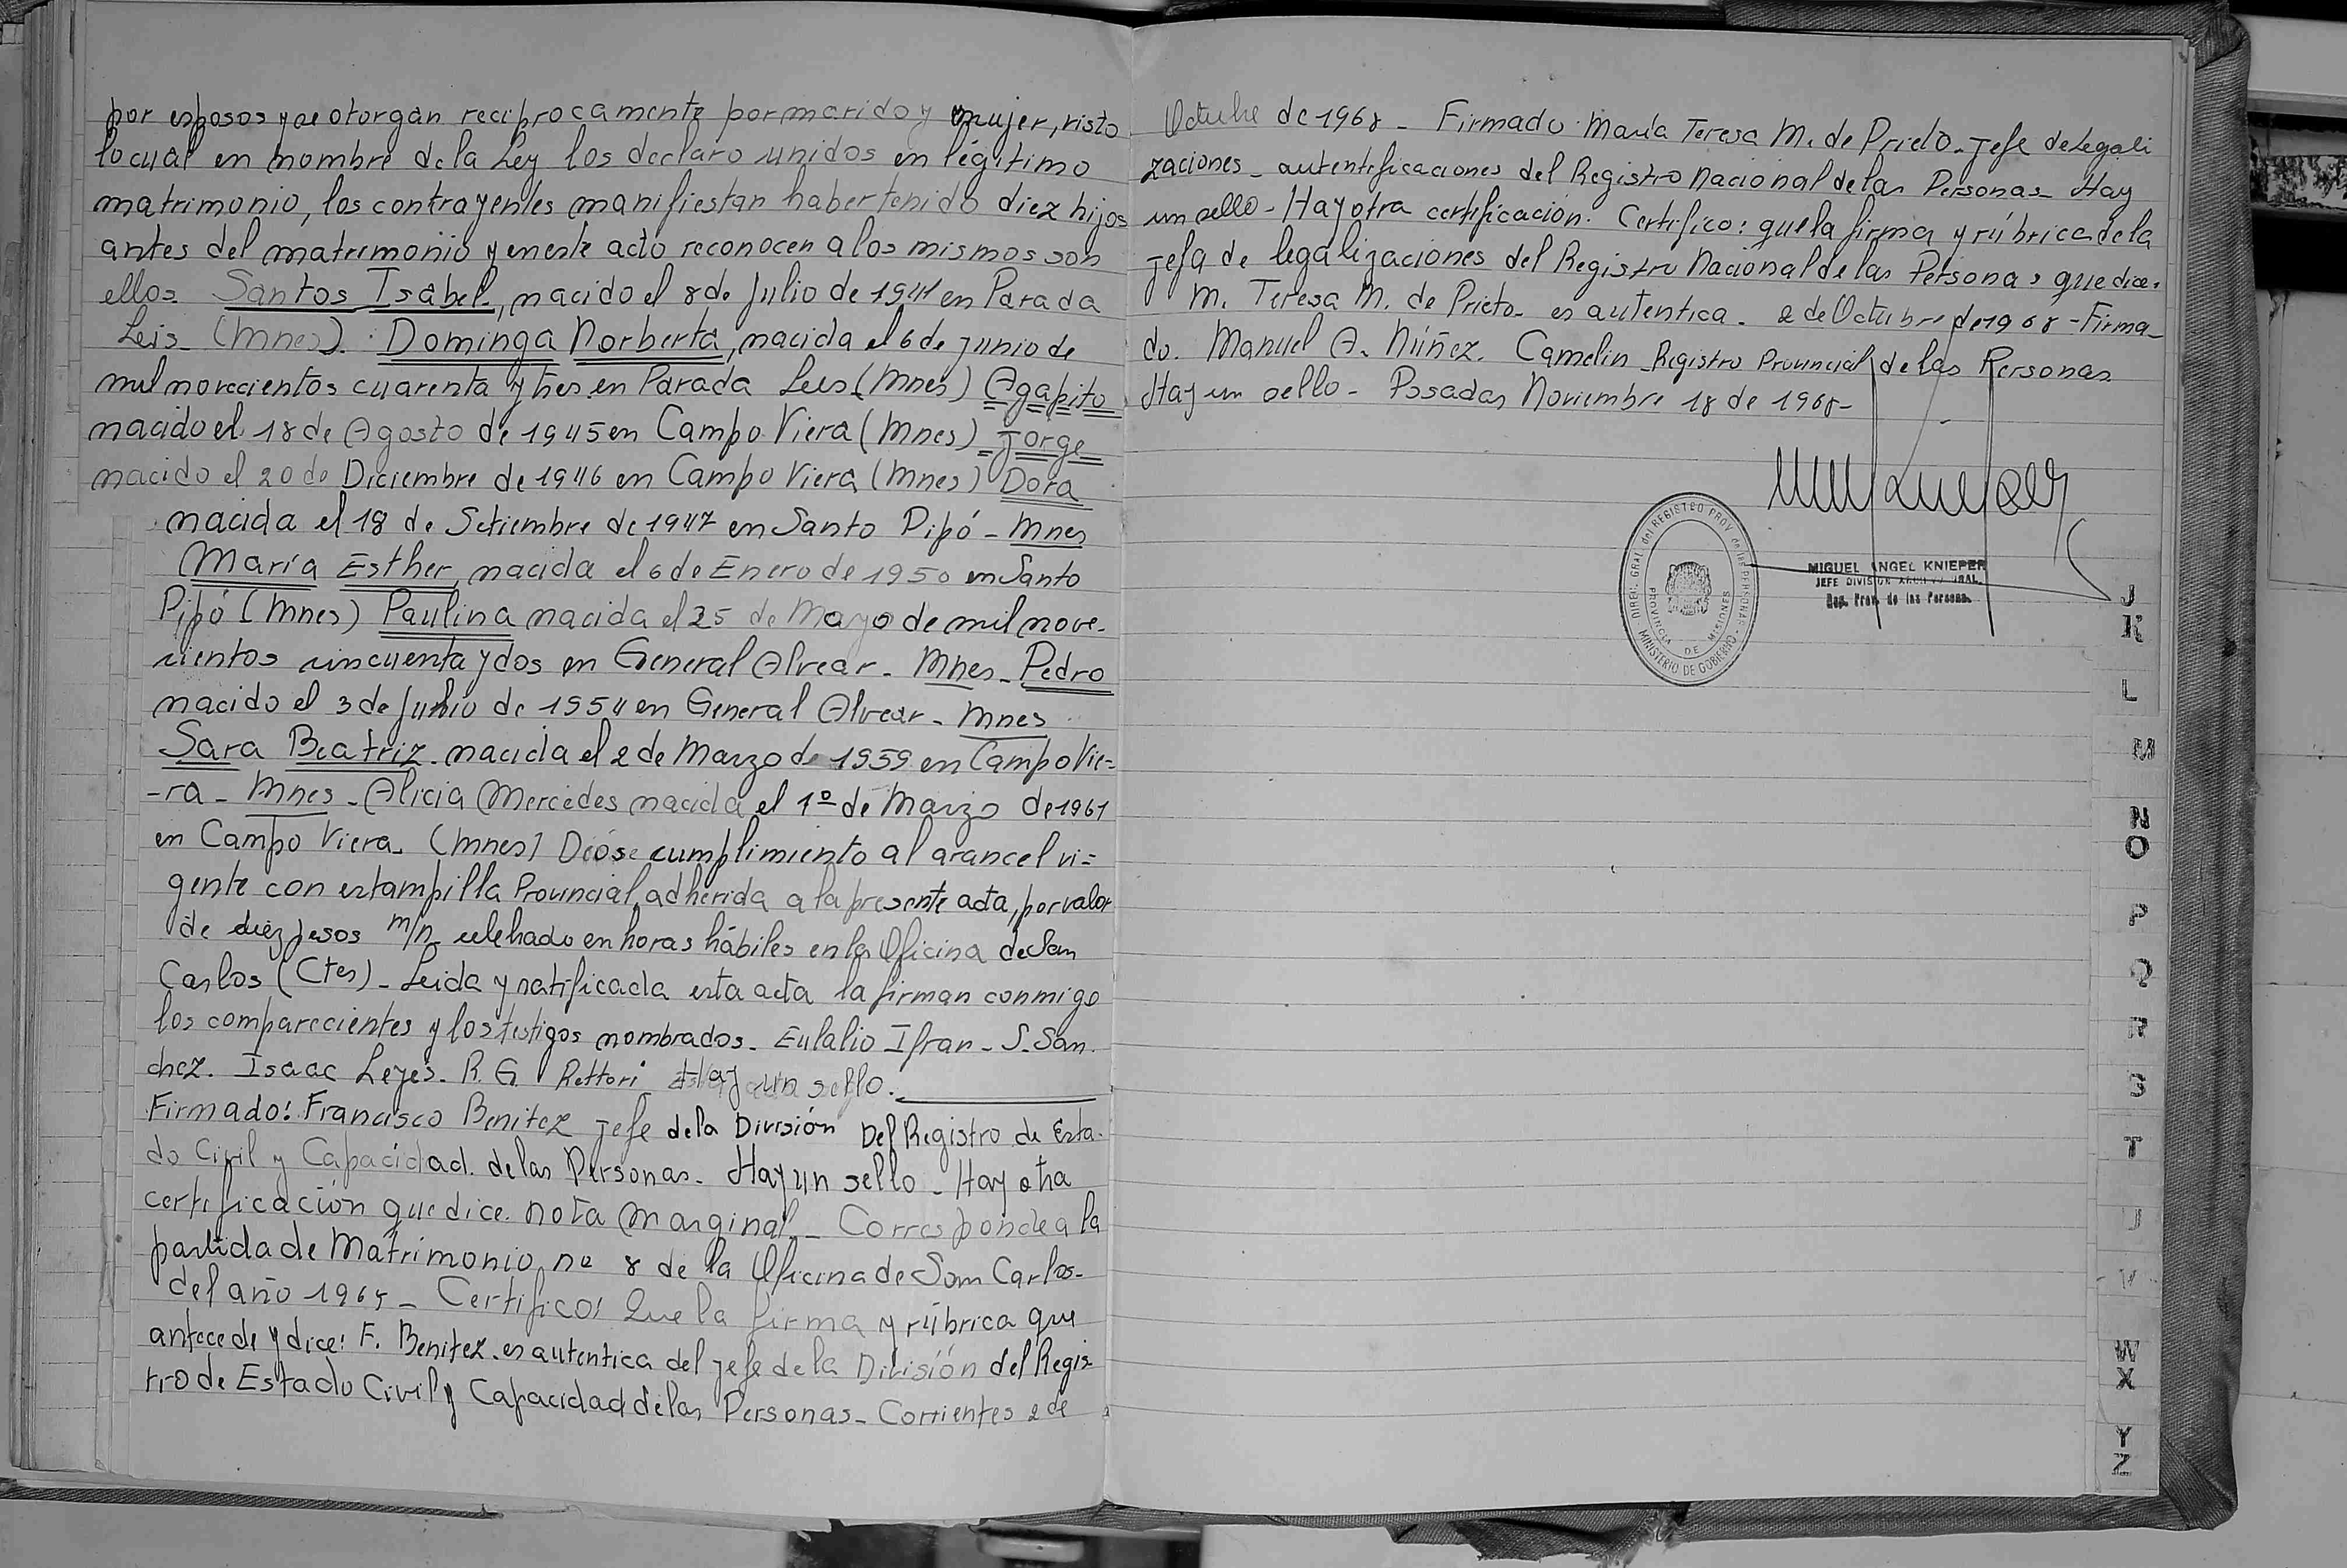 por esposos y se otorgan reciprocamente por marido y mujer, visto
lo cual en nombre de la Ley los declaro unidos en légitimo
matrimonio, los contrayentes manifiestan haber tenido diez hijos
antes del matrimonio y en este acto reconocen a los mismos son
ellos Santos Isabel, nacido el 8 de Julio de 1941 en Parada
Leis (Mnes). Dominga Norberta, nacida el 6 de junio de
mil novecientos cuarenta y tres en Parada Leis (Mnes) Agapito
nacido el 18 de Agosto de 1945 en Campo Viera (Mnes) Jorge
nacido el 20 de Diciembre de 1946 en Campo Viera (Mnes) Dora
nacida el 18 de Setiembre de 1947 en Santo Pipó - Mnes
María Esther, nacida el 6 de Enero de 1950 en Santo
Pipó (Mnes) Paulina nacida el 25 de Mayo de mil nove-
cientos cincuenta y dos en General Alvear - Mnes - Pedro
nacido el 3 de Junio de 1954 en General Alvear - Mnes
Sara Beatriz nacida el 2 de Marzo de 1959 en Campo Vie=
-ra - Mnes - Alicia Mercedes nacida el 1º de Marzo de 1961
en Campo Viera. (Mnes) Dióse cumplimiento al arancel vi=
gente con estampilla Provincial, adherida a la presente acta, por valor
de diez pesos m/n celebrado en horas hábiles en la Oficina de San
Carlos (Ctes) - Leida y ratificada esta acta la firman conmigo
los comparecientes y los testigos nombrados - Eulalio Ifran - S. San
chez. Isaac Leyes. R. G. Rettori Hay un sello.
Firmado: Francisco Benitez jefe de la División Del Registro de Esta-
do Civil y Capacidad de las Personas - Hay un sello - Hay otra
certificación que dice. nota marginal - Corresponde a la
partida de Matrimonio nº 8 de la Oficina de San Carlos-
del año 1965 - Certifico: Que la firma y rúbrica que
antecede y dice: F. Benitez es autentica del jefe de la División del Regis
tro de Estado Civil y Capacidad de las Personas - Corrientes 2 de
Octubre de 1968 - Firmado María Teresa M. de Prieto - jefe de Legali
zaciones - autentificaciones del Registro Nacional de las Personas - Hay
un sello - Hay otra certificación: Certifico: que la firma y rúbrica de la
jefa de legalizaciones del Registro Nacional de las Personas que dice.
M. Teresa M. de Prieto - es autentica - 2 de Octubre de 1968 - Firma-
do. Manuel A. Núñez. Camelin Registro Provincial de las Personas
Hay un sello - Posadas Noviembre 18 de 1968-
DIREC. GRAL. del REGISTRO PROV de las PERSONAS
PROVINCIA DE MISIONES
MINISTERIO DE GOBIERNO
MIGUEL ANGEL KNIEPER
JEFE DIVISION ARCHIVO GRAL.
Reg. Prov. de las Personas
J
K
L
M
N
O
P
Q
R
S
T
U
V
W
X
Y
Z